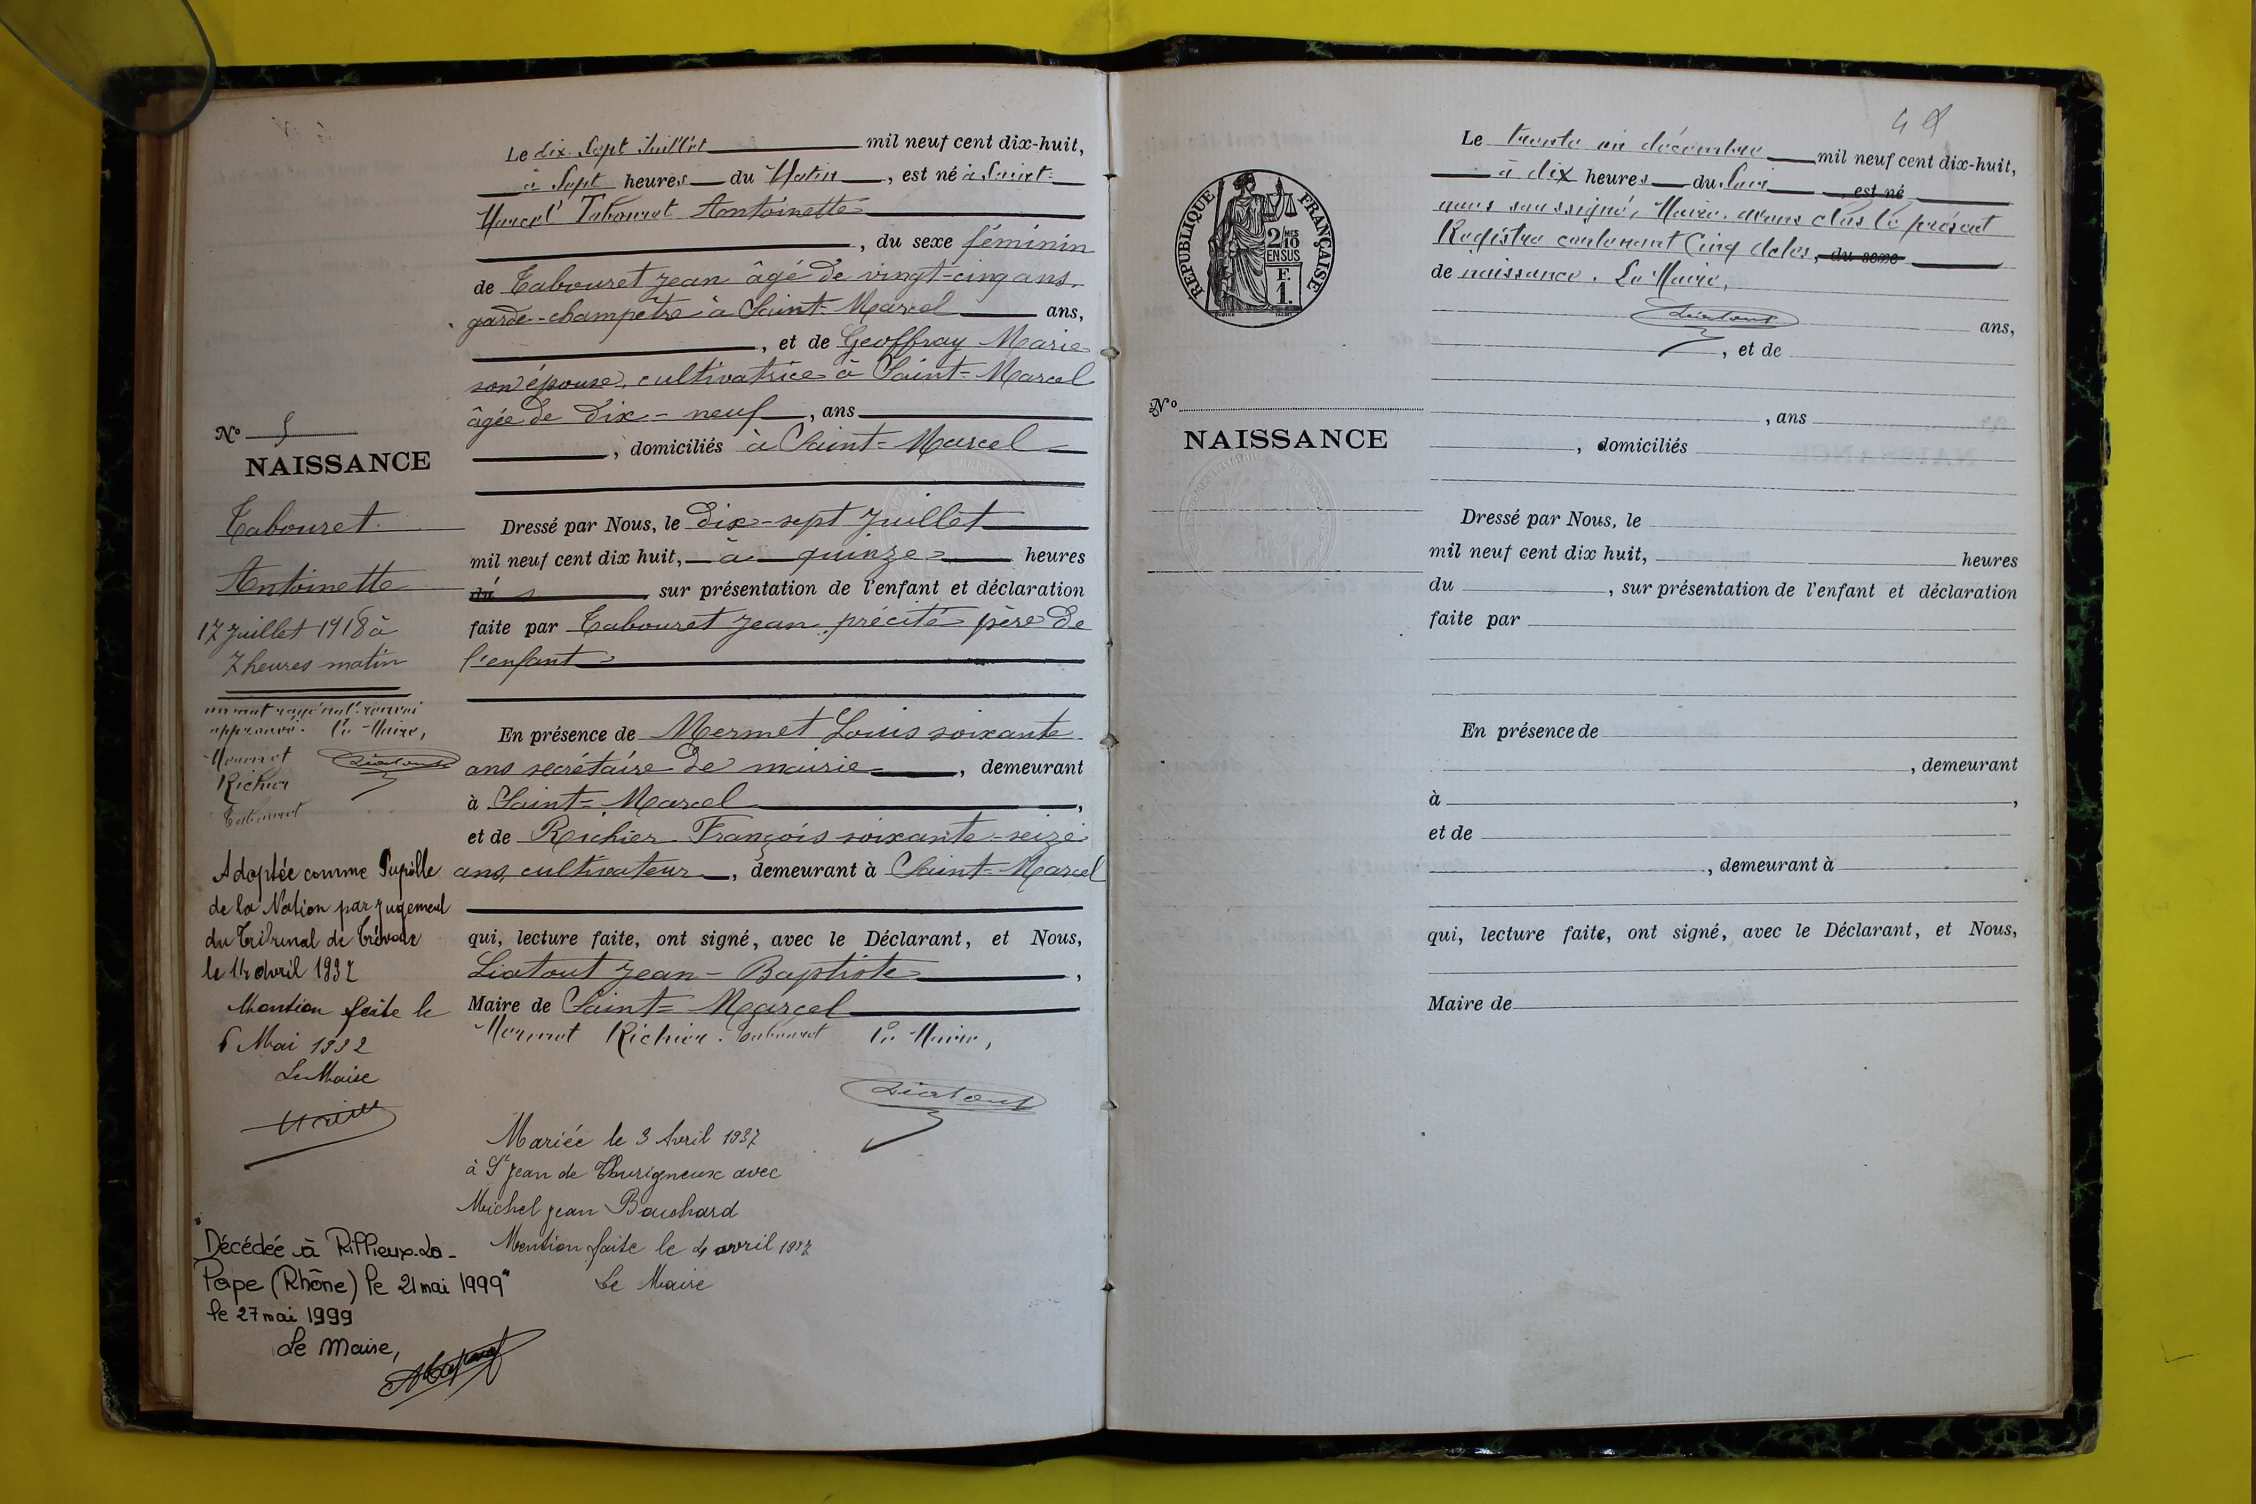 Le dix-sept Juillet mil neuf cent dix-huit,
à Sept heures du Matin, est né à Saint-
Marcel Tabouret Antoinette
, du sexe féminin
de Tabouret Jean âgé de vingt-cinq ans.
garde-champêtre à Saint-Marcel ans,
, et de Geoffray Marie
son épouse, cultivatrice à Saint-Marcel
âgée de dix-neuf, ans
, domiciliés à Saint-Marcel
Dressé par Nous, le dix-sept Juillet
mil neuf cent dix huit, à quinze heures
du sur présentation de l'enfant et déclaration
faite par Tabouret Jean, précité père de
l'enfant
En présence de Mermet Louis soixante
ans secrétaire de mairie, demeurant
à Saint-Marcel,
et de Richier François soixante-seize
ans, cultivateur, demeurant à Saint-Marcel
qui, lecture faite, ont signé, avec le Déclarant, et Nous,
Liatout Jean-Baptiste,
Maire de Saint-Marcel
Mermet Richier. Tabouret Le Maire,
Liatout
Mariée le 3 Avril 1937
à St Jean de Thurigneux avec
Michel Jean Bouchard
Mention faite le 4 avril 1937
Le Maire
No 5
NAISSANCE
Tabouret
Antoinette
17 Juillet 1918 à
7 heures matin
un mot rayé nul. renvoi
approuvé. Le Maire,
Mermet Liatout
Richier
Tabouret
Adoptée comme Pupille
de la Nation par jugement
du Tribunal de Trévoux
le 14 avril 1932
Mention faite le
6 Mai 1932
Le Maire
"Décédée à Rillieux-La-
Pape (Rhône) le 21 mai 1999"
le 27 mai 1999
Le Maire,
RÉPUBLIQUE FRANÇAISE
2 MES
10
EN SUS
F.
1.
No
NAISSANCE
Le trente un décembre mil neuf cent dix-huit,
à dix heures du soir, est né
nous soussigné, Maire, avons clos le présent
Registre contenant Cinq actes, du sexe
de naissance. Le Maire,
Liatout
ans,
, et de
, ans
, domiciliés
Dressé par Nous, le
mil neuf cent dix huit, heures
du , sur présentation de l'enfant et déclaration
faite par
En présence de
, demeurant
à ,
et de
, demeurant à
qui, lecture faite, ont signé, avec le Déclarant, et Nous,
Maire de